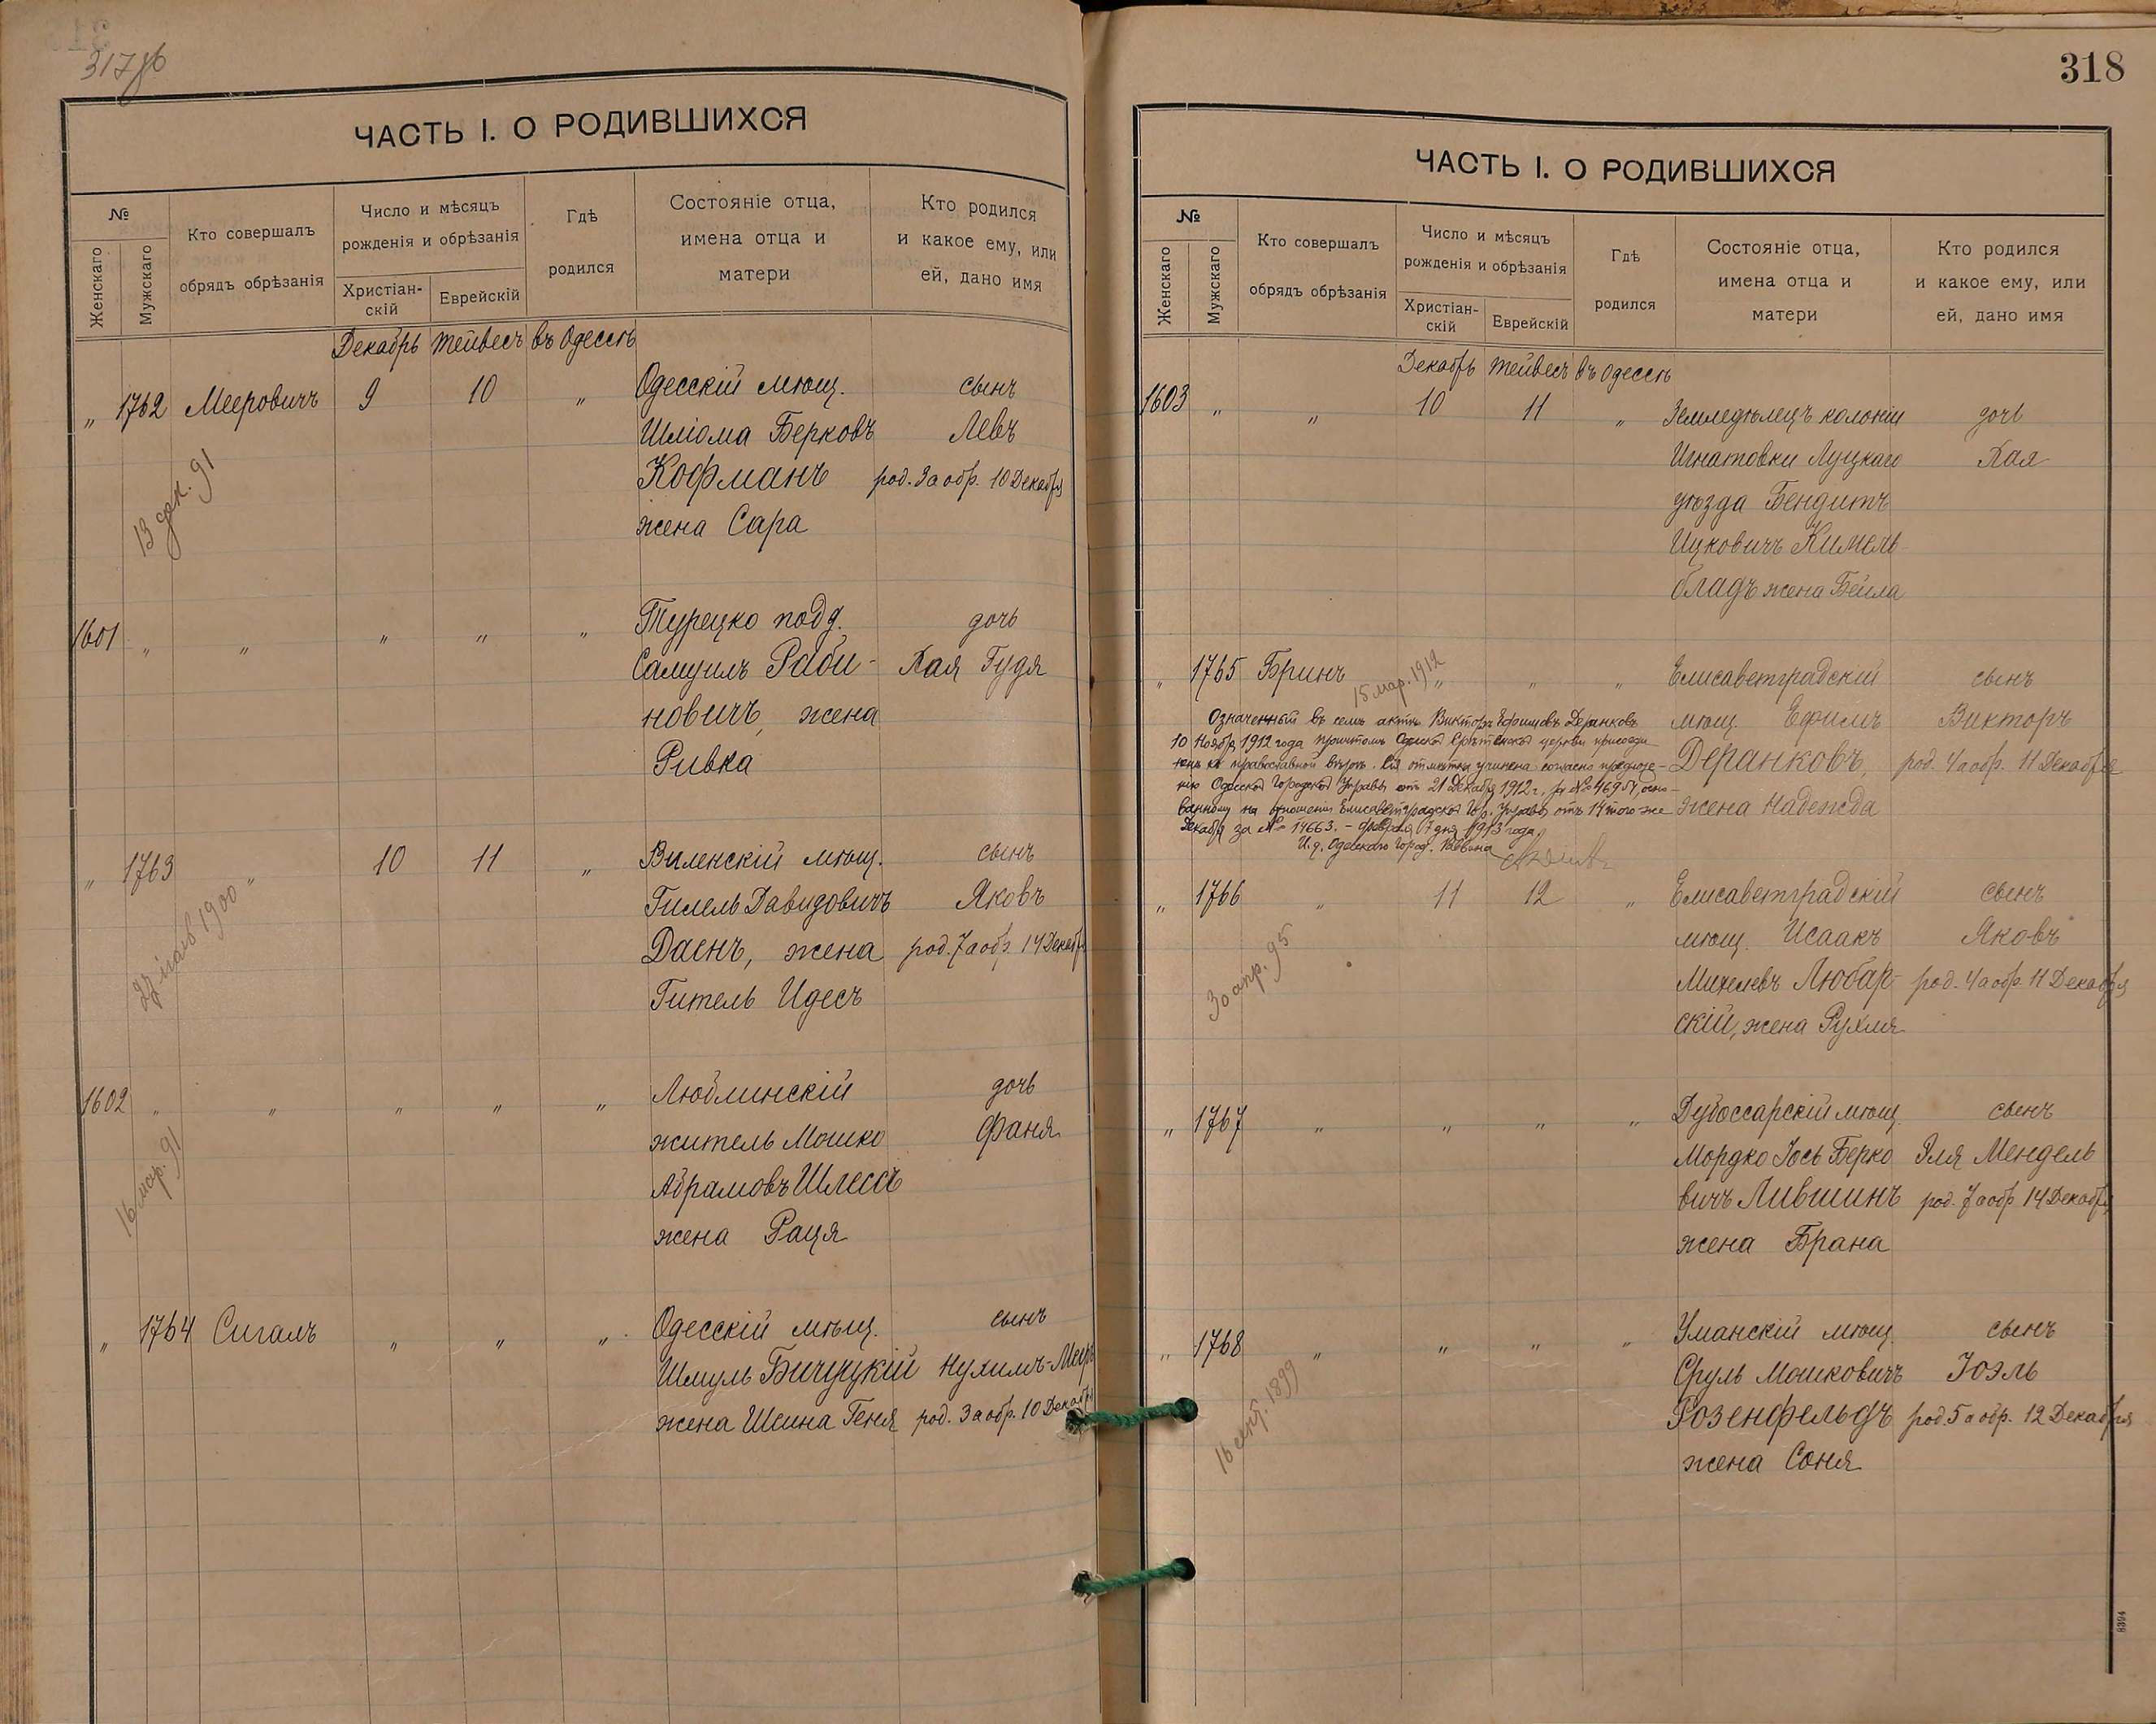 317 об
ЧАСТЬ I. О РОДИВШИХСЯ
№
Женскаго
Мужскаго
Кто совершалъ
обрядъ обрѣзанія
Число и мѣсяцъ
рожденія и обрѣзанія
Христіан-
скій
Еврейскій
Гдѣ
родился
Состояніе отца,
имена отца и
матери
Кто родился
и какое ему, или
ей, дано имя
Декабрь Тейвесъ въ Одессѣ
„ 1762 Мееровичъ 9 10 „ Одесскій мѣщ. сынъ
Шліома Берковъ Левъ
Кофманъ род. 3 а обр. 10 Декабря
жена Сара
13 дек. 91
1601 „ „ „ „ „ Турецко подд. дочь
Самуилъ Раби- Хая Гудя
новичъ, жена
Ривка
„ 1763 „ 10 11 „ Виленскій мѣщ. сынъ
Гилель Давидовичъ Яковъ
Даенъ, жена род. 7 а обр. 14 Декабр
Гитель Идесъ
1900
1602 „ „ „ „ „ Люблинскій дочь
житель Мошко Фаня
Абрамовъ Шлессъ
жена Рація
16 мар. 91
„ 1764 Сигалъ „ „ „ Одесскій мѣщ. сынъ
Шмуль Бичуцкій Нухимъ-Мееръ
жена Шеина Геня род. 3 а обр. 10 Декабря
318
ЧАСТЬ I. О РОДИВШИХСЯ
№
Женскаго
Мужскаго
Кто совершалъ
обрядъ обрѣзанія
Число и мѣсяцъ
рожденія и обрѣзанія
Христіан-
скій
Еврейскій
Гдѣ
родился
Состояніе отца,
имена отца и
матери
Кто родился
и какое ему, или
ей, дано имя
Декабрь Тейвесъ въ Одессѣ
1603 „ „ 10 11 „ Земледѣлецъ колоніи дочь
Игнатовки Луцкаго Хая
уѣзда Бендитъ
Ицковичъ Кимель-
бладъ жена Бейла
„ 1765 Бринъ „ „ „ Елисаветградскій сынъ
15 мар. 1912
мѣщ. Ефимъ Викторъ
Деранковъ, род. 4 а обр. 11 Декабря
жена Надежда
Означенный въ семъ актѣ Викторъ Ефимовъ Деранковъ
10 Ноября 1912 года причтомъ Одесской Срѣтенской церкви присоеди-
ненъ къ православной вѣрѣ. Сія отмѣтка учинена согласно предложе-
нію Одесской Городской Управы отъ 21 Декабря 1912 г. за № 46954, осно-
ванному на отношеніи Елисаветградской Гор. Управы отъ 14 того же
Декабря за № 14663. – Февраля 7 дня 1913 года.
И. д. Одесскаго Город. Раввина
„ 1766 „ 11 12 „ Елисаветградскій сынъ
мѣщ. Исаакъ Яковъ
Михелевъ Любар- род. 4 а обр. 11 Декабря
скій, жена Рухля
30 апр. 95
„ 1767 „ „ „ „ Дубоссарскій мѣщ. сынъ
Мордко Іось Берко Эля Мендель
вичъ Лившинъ род. 7 а обр 14 Декабря
жена Брана
„ 1768 „ „ „ „ Уманскій мѣщ. сынъ
Сруль Мошковичъ Іоэль
Розенфельдъ род. 5 а обр. 12 Декабря
жена Соня
1899
8394